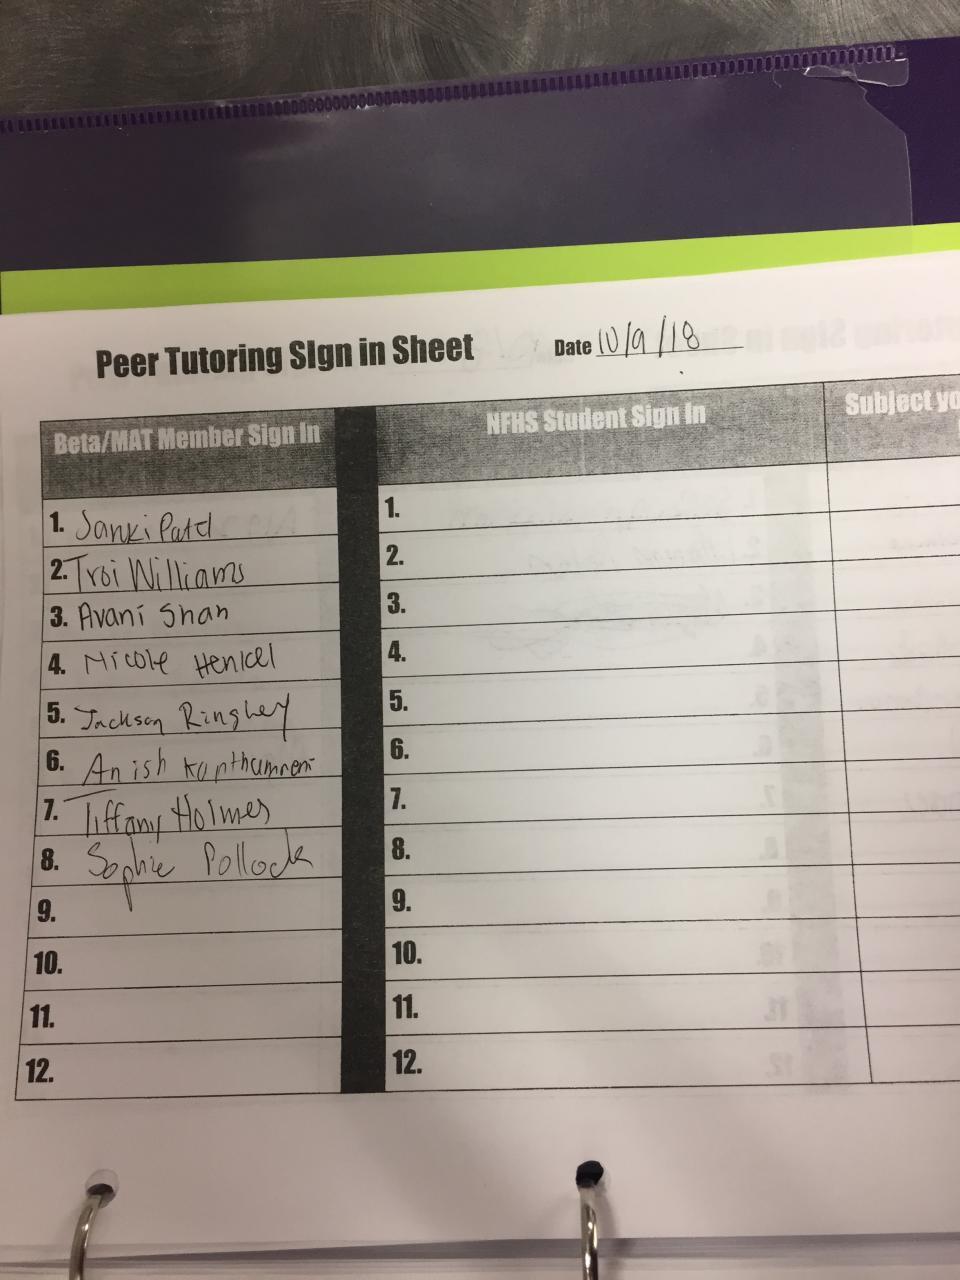 Peer Tutoring SIgn in Sheet Date 10/9/18
Beta/MAT Member Sign In NFHS Student Sign In Subject yo
1. Janki Patel 1.
2. Troi Williams 2.
3. Avani Shah 3.
4. Nicole Henkel 4.
5. Jackson Ringhey 5.
6. Anish 6.
7. Tiffany Holmes 7.
8. Sophie Pollock 8.
9. 9.
10. 10.
11. 11.
12. 12.